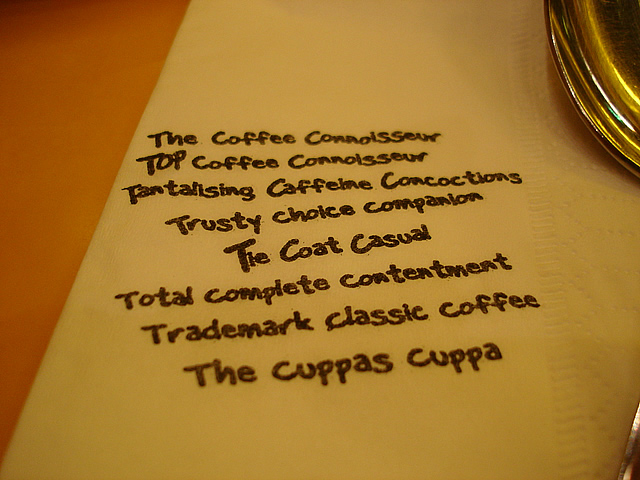 The Coffee Connoisseur
TOP Coffee Connoisseur
Tantalising Caffeine Concoctions
Trusty choice companion
Tie Coat Casual
Total complete contentment
Trademark classic coffee
The cuppas cuppa